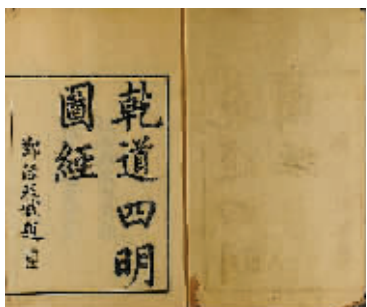 乾道四明
圖經